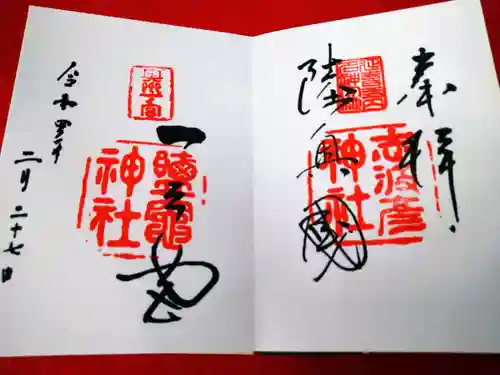 奉拝
志波彦
神社
陸奥國
一之宮
鹽竈
神社
令和四年
二月二十七日